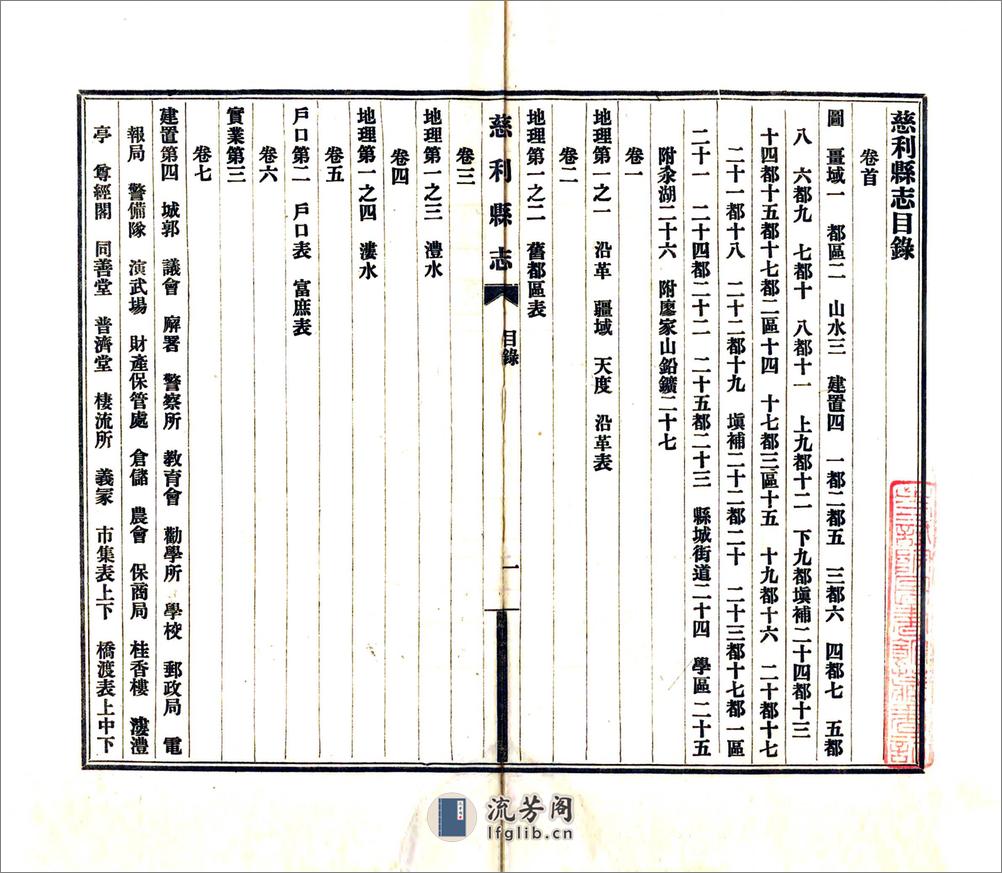 慈利縣志目錄
卷首
圖 畺域一 都區二 山水三 建置四 一都二都五 三都六 四都七 五都
八 六都九 七都十 八都十一 上九都十二 下九都塡補二十四都十三
十四都十五都十七都二區十四 十七都三區十五 十九都十六 二十都十七
二十一都十八 二十二都十九 塡補二十二都二十 二十三都十七都一區
二十一 二十四都二十二 二十五都二十三 縣城街道二十四 學區二十五
附汆湖二十六 附廖家山鉛鑛二十七
卷一
地理第一之一 沿革 疆域 天度 沿革表
卷二
地理第一之二 舊都區表
慈利縣志
目錄
一
卷三
地理第一之三 澧水
卷四
地理第一之四 漊水
卷五
戶口第二 戶口表 富庶表
卷六
實業第三
卷七
建置第四 城郭 議會 廨署 警察所 教育會 勸學所 學校 郵政局 電
報局 警備隊 演武場 財產保管處 倉儲 農會 保商局 桂香樓 漊澧
亭 尊經閣 同善堂 普濟堂 棲流所 義冢 市集表上下 橋渡表上中下
流芳阁
lfglib.cn